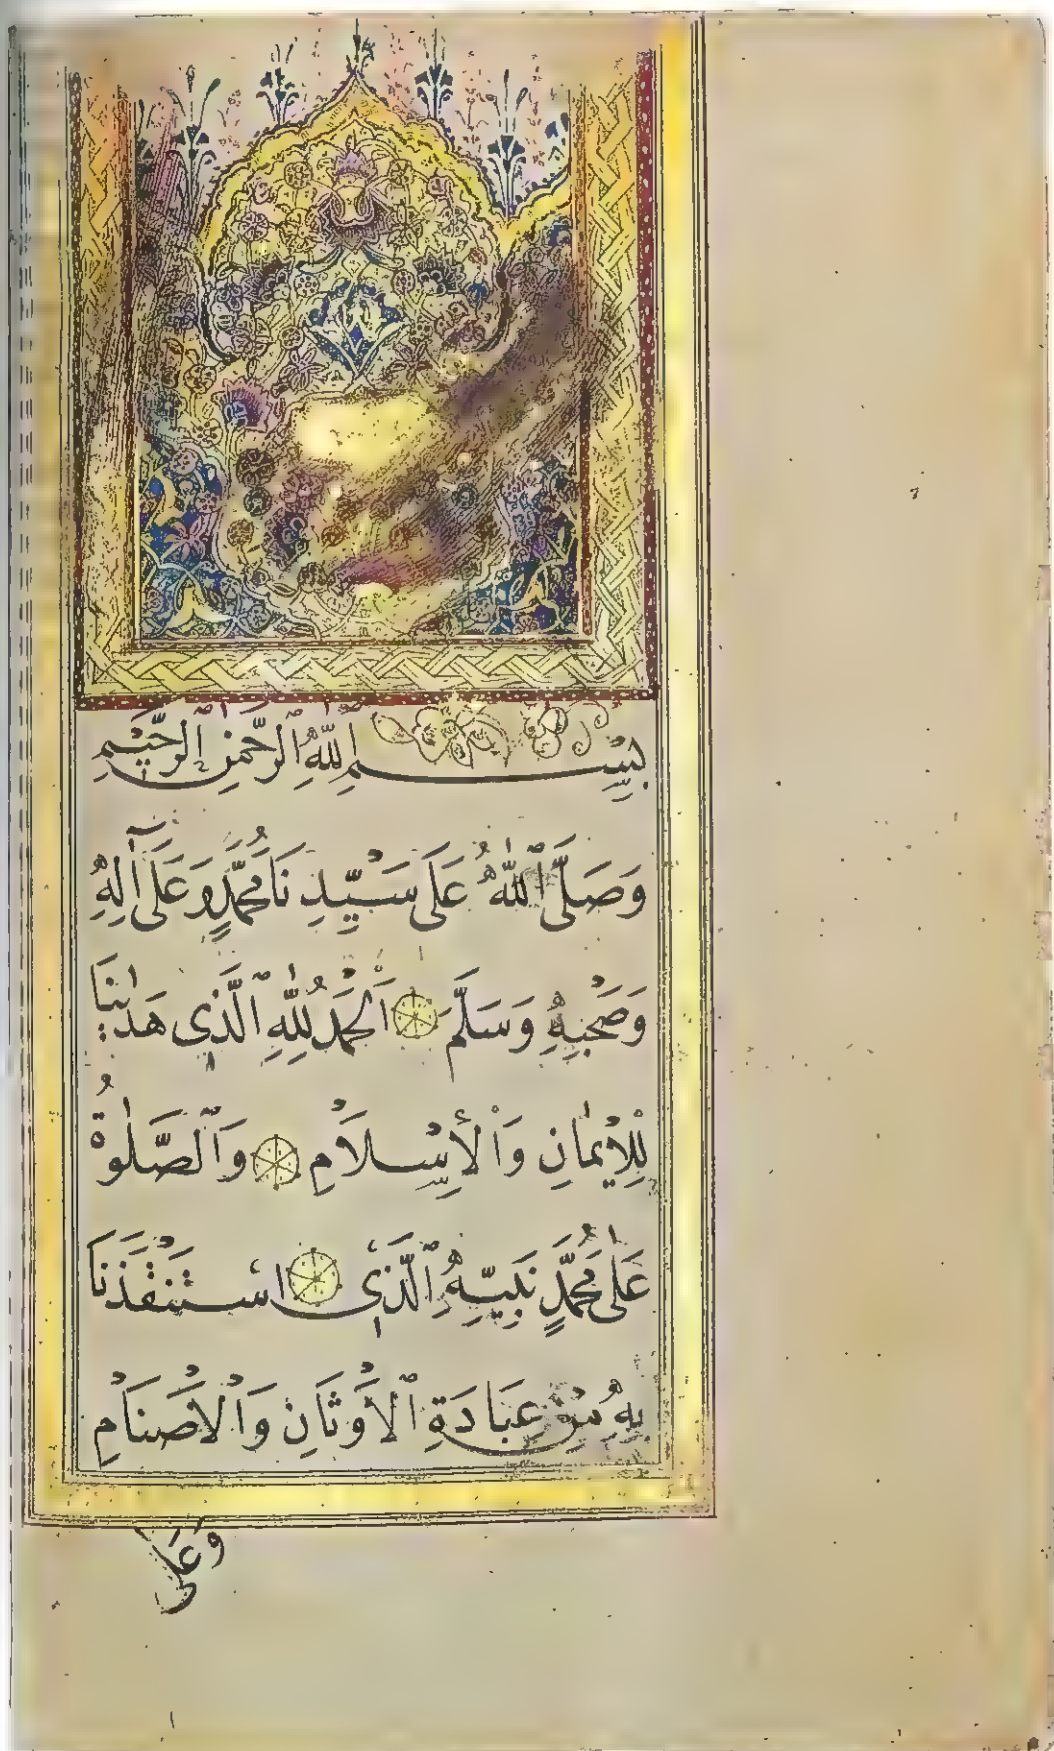 بِسْمِ ٱللّٰهِ ٱلرَّحْمٰنِ ٱلرَّحِيْمِ
وَصَلَّى ٱللّٰهُ عَلَى سَيِّدِنَا مُحَمَّدٍ وَعَلَى آلِهِ
وَصَحْبِهِ وَسَلَّمَ اَلْحَمْدُ لِلّٰهِ ٱلَّذِى هَدٰىنَا
لِلْإِيْمَانِ وَالْإِسْلَامِ وَٱلصَّلٰوةُ
عَلٰى مُحَمَّدٍ نَبِيِّهِ ٱلَّذِى اسْتَنْقَذَنَا
بِهِ مِنْ عِبَادَةِ ٱلْأَوْثَانِ وَٱلْأَصْنَامِ
وَعَلَى